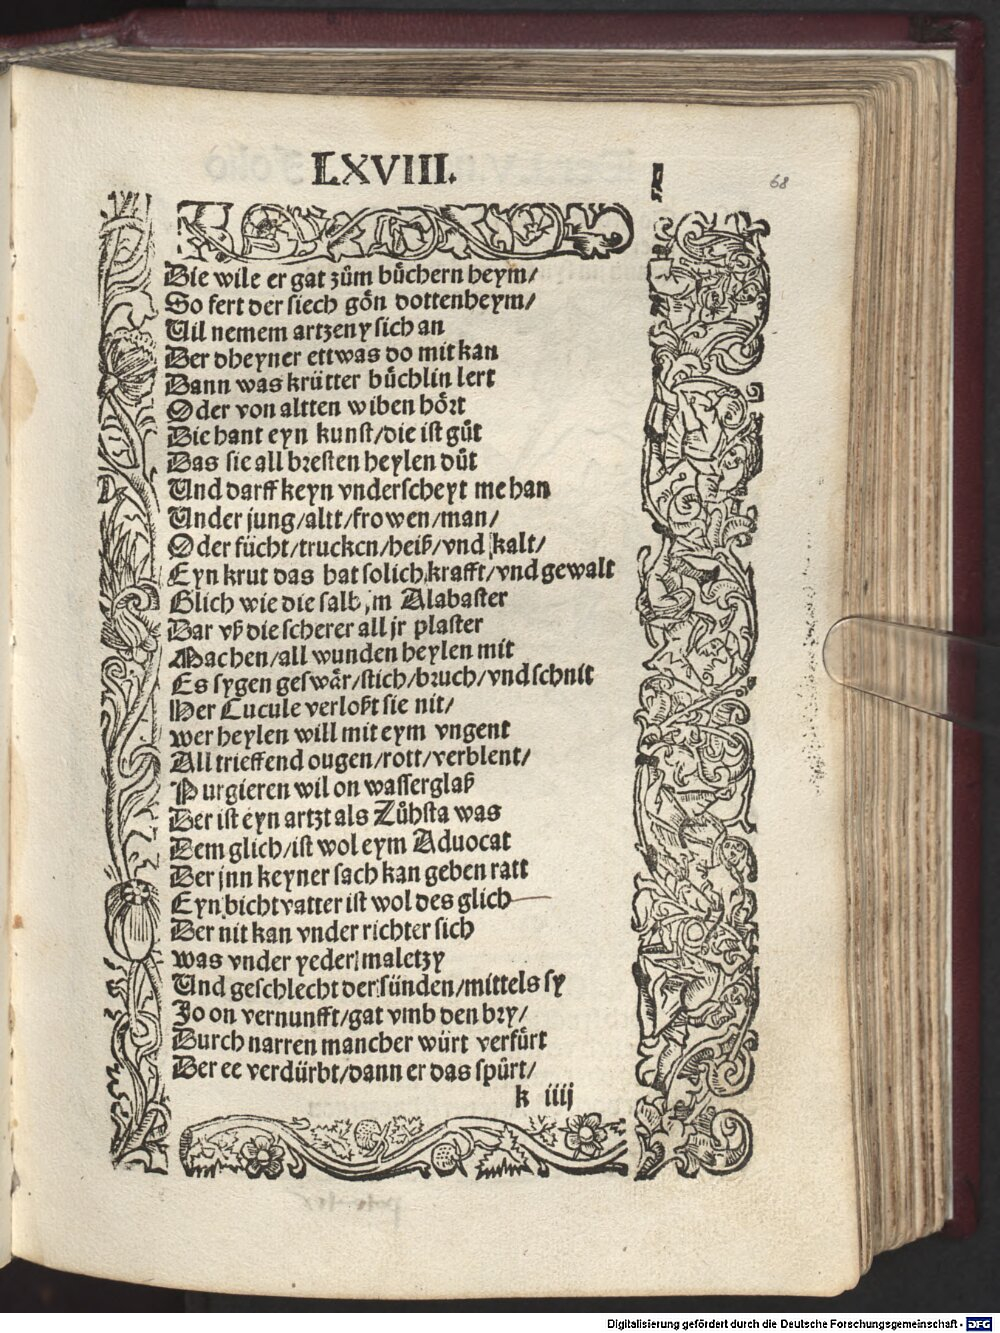 LXVIII.
68
Die wile er gat zům bůchern heym/
So fert der siech gön dottenheym/
Vil nemem artzeny sich an
Der dheyner ettwas do mit kan
Dann was krütter bůchlin lert
Oder von altten wiben hört
Die hant eyn kunst/die ist gůt
Das sie all bresten heylen důt
Vnd darff keyn vnderscheyt me han
Vnder jung/altt/frowen/man/
Oder fücht/trucken/heiß/vnd kalt/
Eyn krut das hat solich krafft/vnd gewalt
Glich wie die salb jm Alabaster
Dar vß die scherer all jr plaster
Machen/all wunden heylen mit
Es sygen geswär/stich/bruch/vnd schnit
Her Cucule verloßt sie nit/
wer heylen will mit eym vngent
All trieffend ougen/rott/verblent/
Purgieren wil on wasserglaß
Der ist eyn artzt als Zůhsta was
Dem glich/ist wol eym Aduocat
Der jnn keyner sach kan geben ratt
Eyn bichtvatter ist wol des glich
Der nit kan vnderrichter sich
was vnder yeder maletzy
Vnd geschlecht der sünden/mittels sy
Jo on vernunfft/gat vmb den bry/
Durch narren mancher würt verfürt
Der ee verdürbt/dann er das spürt/
k iiij
Digitalisierung gefördert durch die Deutsche Forschungsgemeinschaft - DFG